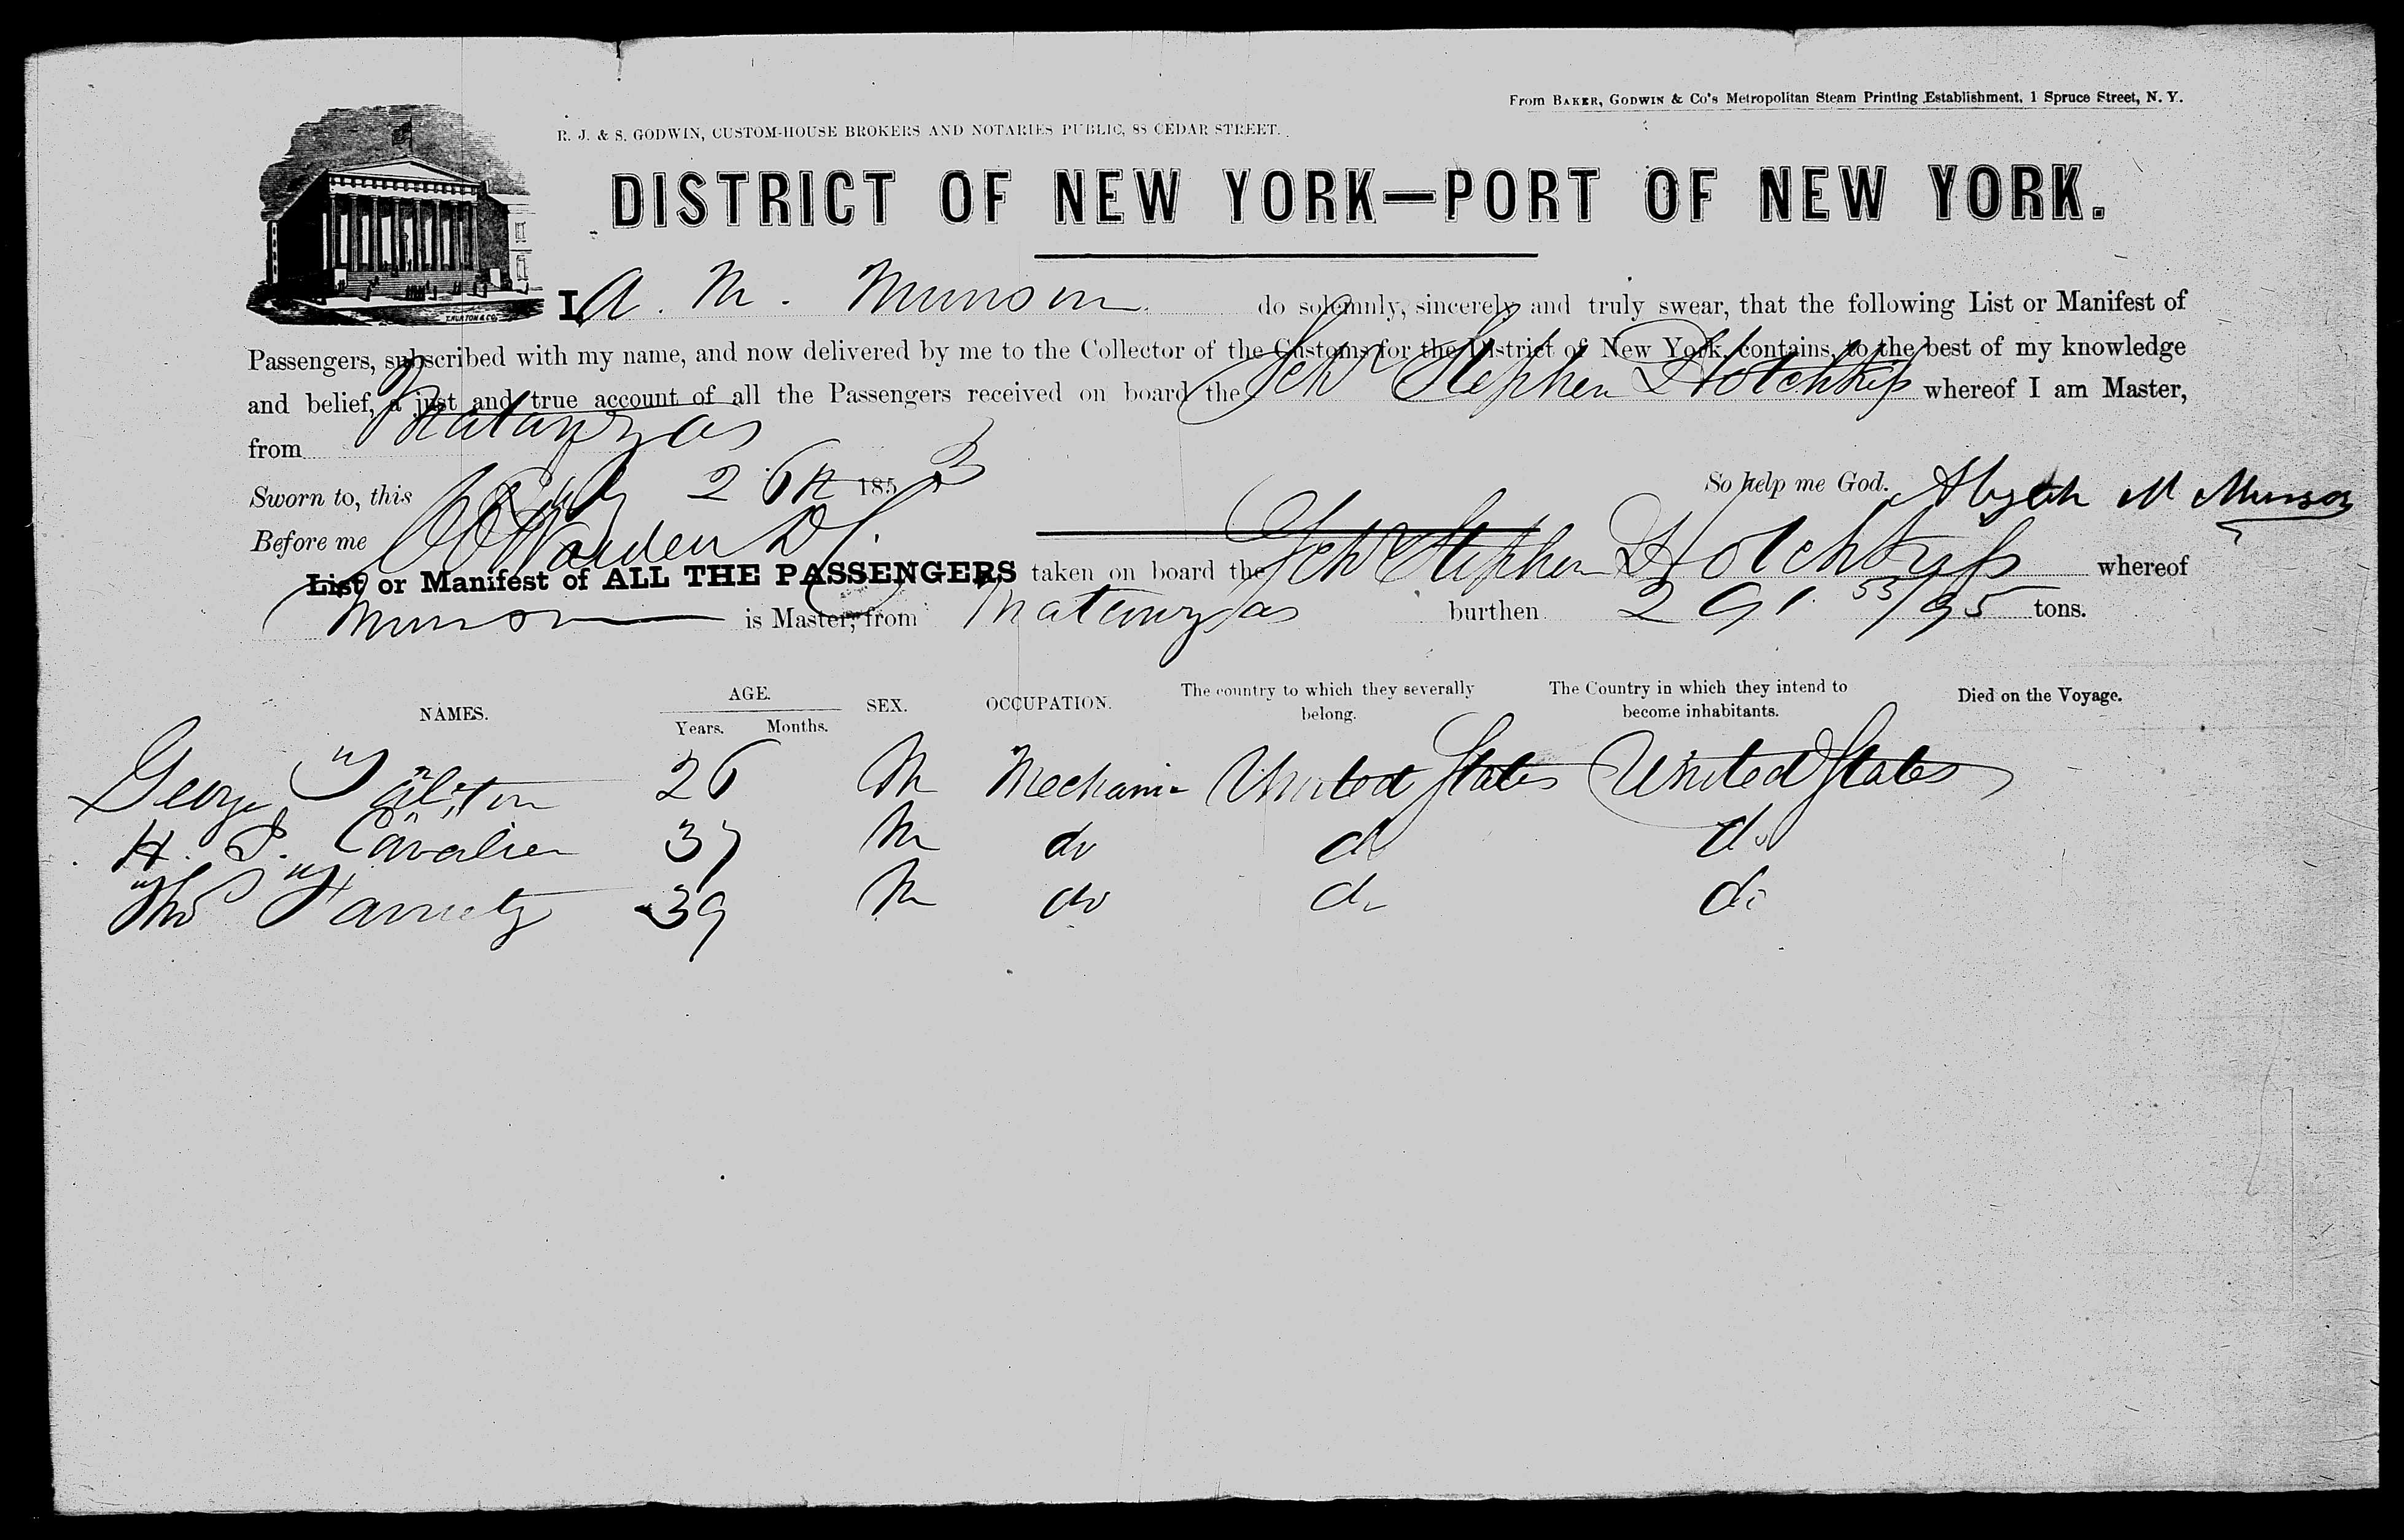 From BAKER, GODWIN & Co's Metropolitan Steam Printing Establishment, 1 Spruce Street, N. Y.
R. J. & S. GODWIN, CUSTOM-HOUSE BROKERS AND NOTARIES PUBLIC, 88 CEDAR STREET.
DISTRICT OF NEW YORK—PORT OF NEW YORK.
I, A. M. Munson do solemnly, sincerely and truly swear, that the following List or Manifest of
Passengers, subscribed with my name, and now delivered by me to the Collector of the Customs for the District of New York, contains, to the best of my knowledge
and belief, a just and true account of all the Passengers received on board the Schr Stephen Hotchkiss whereof I am Master,
from Matanzas
Sworn to, this July 26th 1853 So help me God. M Munson
Before me Warden
List or Manifest of ALL THE PASSENGERS taken on board the Schr Stephen Hotchkiss whereof
Munson is Master, from Matanzas burthen 291. 55/95 tons.
NAMES. AGE. Years. Months. SEX. OCCUPATION. The country to which they severally belong. The Country in which they intend to become inhabitants. Died on the Voyage.
George 26 M Mechanic United States United States
H. S. Cavalier 37 M do do do
Thos 39 M do do do